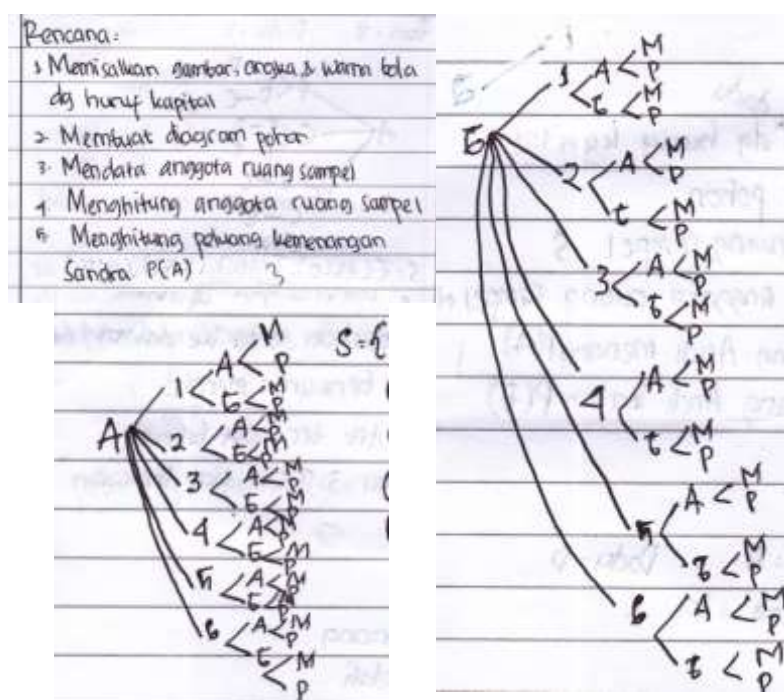 Rencana:
1 Memisalkan gambar, angka & warna bola
dg huruf kapital
2 Membuat diagram pohon
3. Mendata anggota ruang sampel
4 Menghitung anggota ruang sampel
5 Menghitung peluang kemenangan
Sandra P(A)
S = {
A
1 A M
P
G M
P
2 A M
P
G M
P
3 A M
P
G M
P
4 A M
P
G M
P
5 A M
P
G M
P
6 A M
P
G M
P
G
1 A M
P
G M
P
2 A M
P
G M
P
3 A M
P
G M
P
4 A M
P
G M
P
5 A M
P
G M
P
6 A M
P
G M
P